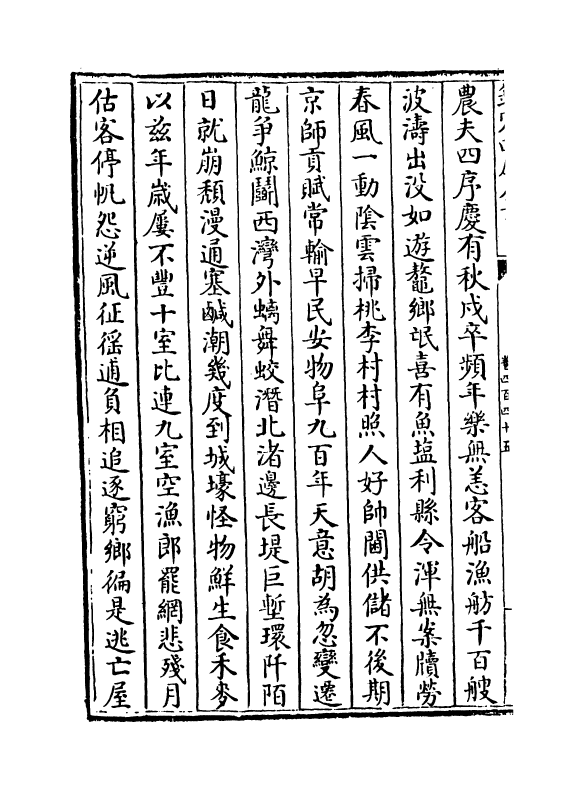 農夫四序慶有秋戍卒頻年樂無恙客船漁舫千百艘
波濤出没如遊鼇鄉氓喜有魚塩利縣令渾無案牘勞
春風一動陰雲掃桃李村村照人好帥閫供儲不後期
京師貢賦常輸早民安物阜九百年天意胡為忽變遷
龍爭鯨鬭西灣外螭舞蛟潛北渚邊長堤巨塹環阡陌
日就崩頹漫通塞鹹潮幾度到城壕怪物鮮生食禾麥
以兹年歲屢不豐十室比連九室空漁郎罷網悲殘月
估客停帆怨逆風征徭逋負相追逐窮鄉徧是逃亡屋
卷四百四十五